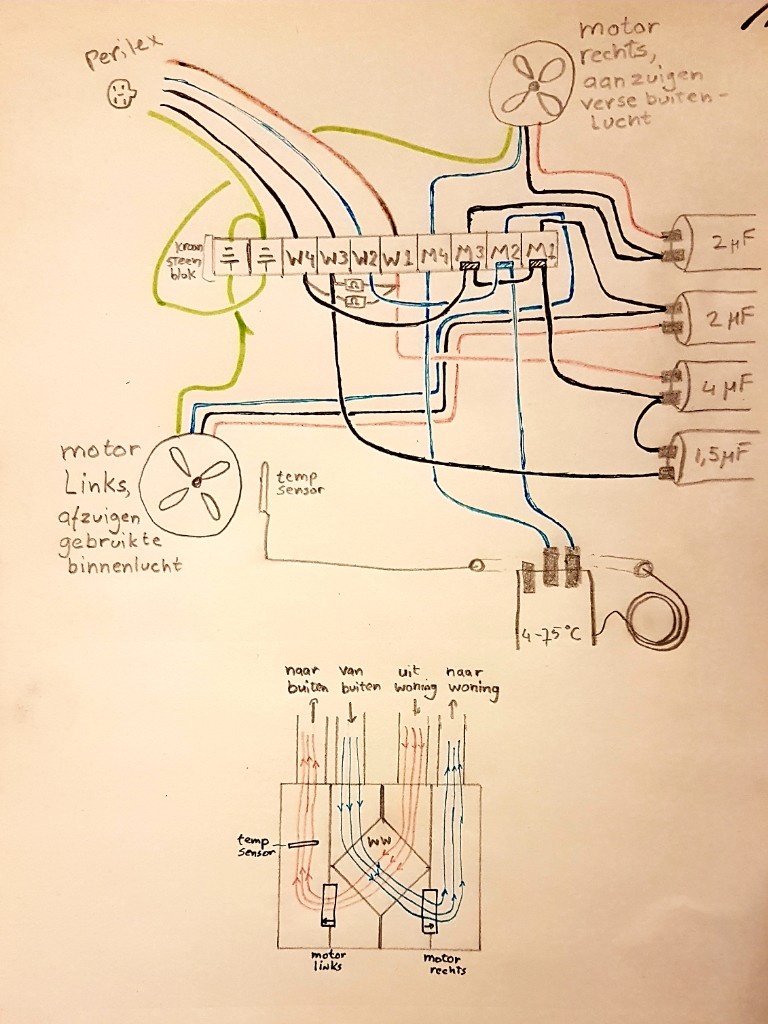 Perilex
motor
rechts,
aanzuigen
verse buiten-
lucht
kroon
steen
blok
W4 W3 W2 W1 M4 M3 M2 M1
Ω
Ω
2 μF
2 μF
4 μF
1,5μF
motor
Links,
afzuigen
gebruikte
binnenlucht
temp
sensor
4-75°C
naar
buiten
van
buiten
uit
woning
naar
woning
temp
sensor
WW
motor
links
motor
rechts